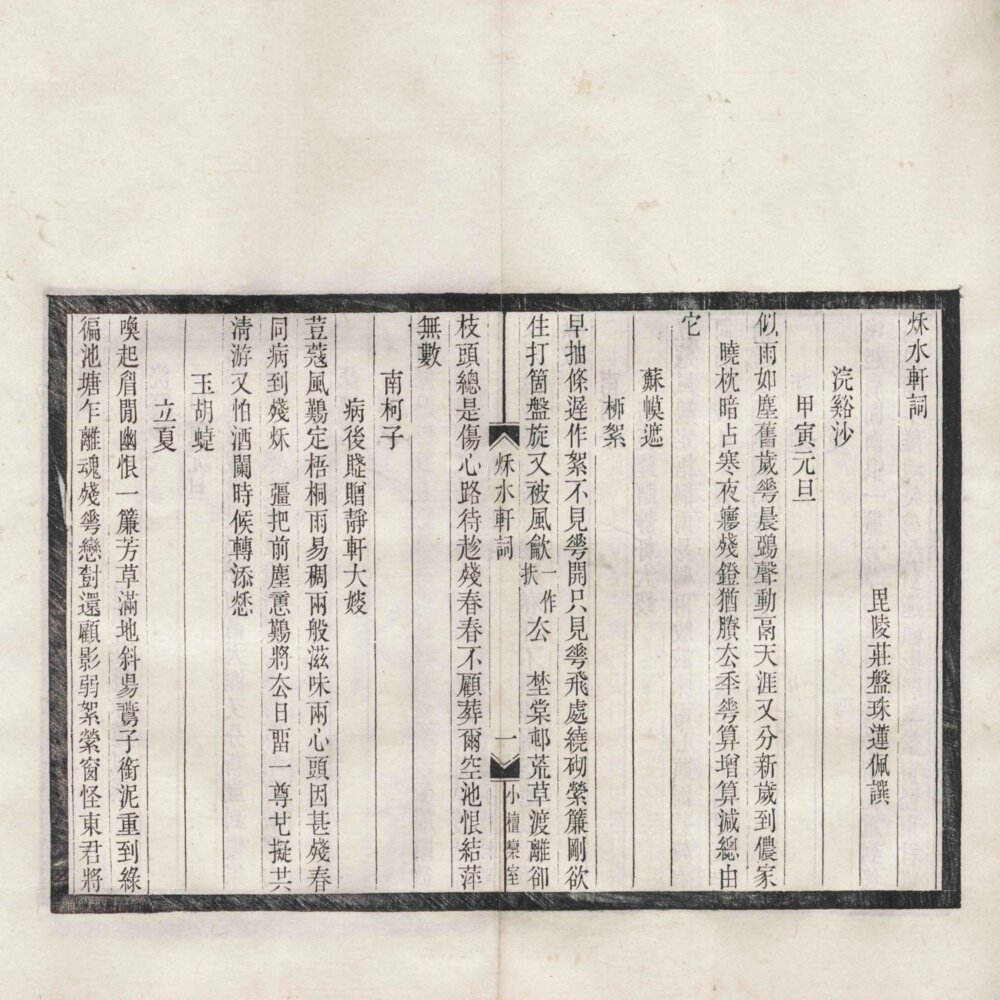 秌水軒詞
毘陵莊盤珠蓮佩譔
浣谿沙
甲寅元旦
似雨如塵舊歲𠌶晨鵶聲動鬲天涯又分新歲到儂家
曉枕暗占寒夜㝱殘鐙猶賸厺秊𠌶算增算減總由
它
蘇幙遮
桺絮
早抽條遲作絮不見𠌶開只見𠌶飛處繞砌縈簾剛欲
住打箇盤旋又被風歈一作扶厺　埜棠邨荒草渡離卻
枝頭總是傷心路待趁殘春春不顧葬爾空池恨結萍
無數
南柯子
病後賤贈靜軒大嫂
荳蔻風鷬定梧桐雨易稠兩般滋味兩心頭因甚殘春
同病到殘秌　彊把前塵㥶鷬將厺日畱一尊芅擬共
清游又怕酒闌時候轉添愁
玉胡蜨
立夏
喚起眉閒幽恨一簾芳草滿地斜昜鷰子銜泥重到綠
徧池塘乍離魂殘𠌶戀對還顧影弱絮縈窗怪東君將
秌水軒詞
一
小檀欒室